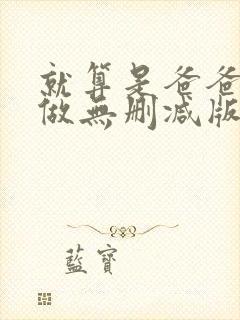 就算是爸爸
做無删减版
藍寶